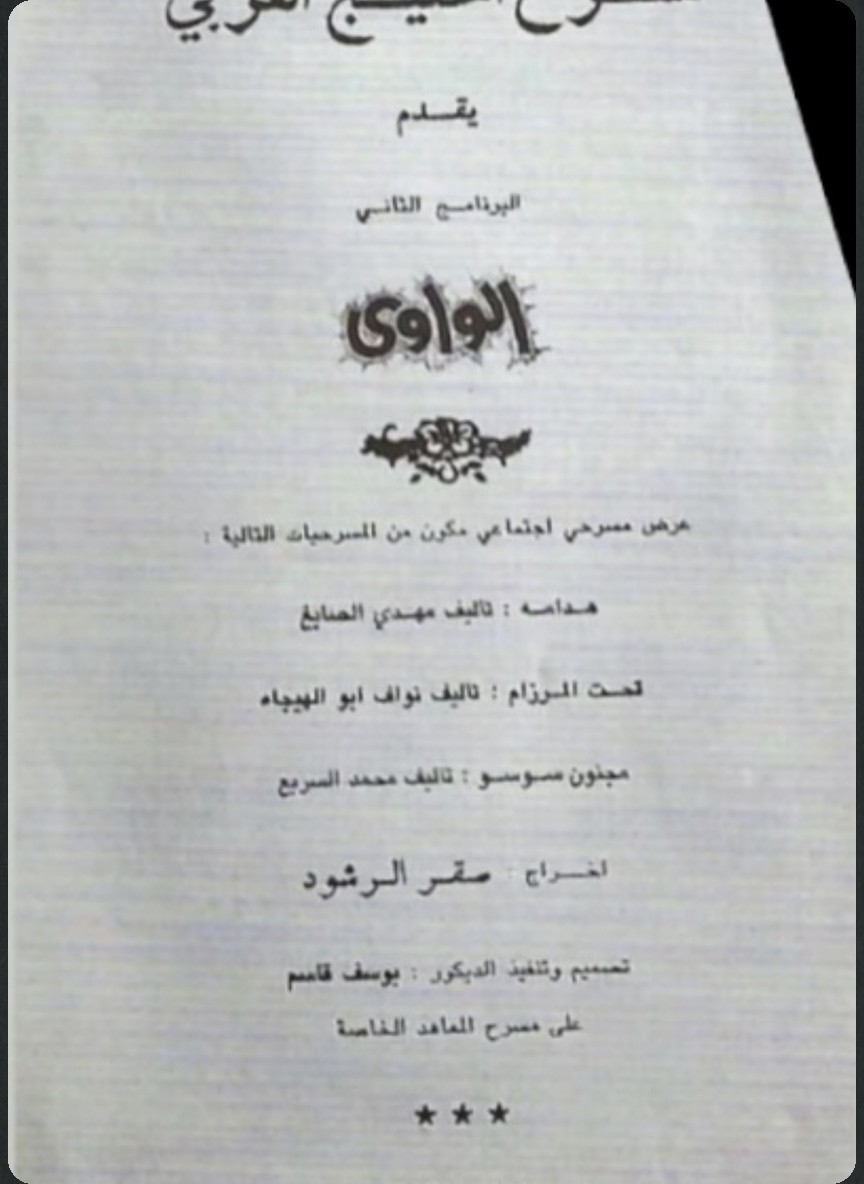 مسرح الخليج العربي
يقدم
البرنامج الثاني
الواوى
عرض مسرحي اجتماعي مكون من المسرحيات التالية :
هدامه : تاليف مهدي الصايغ
تحت المرزام : تاليف نواف ابو الهيجاء
مجنون سوسو : تاليف محمد السريع
اخراج : صقر الرشود
تصميم وتنفيذ الديكور : يوسف قاسم
على مسرح المعاهد الخاصة